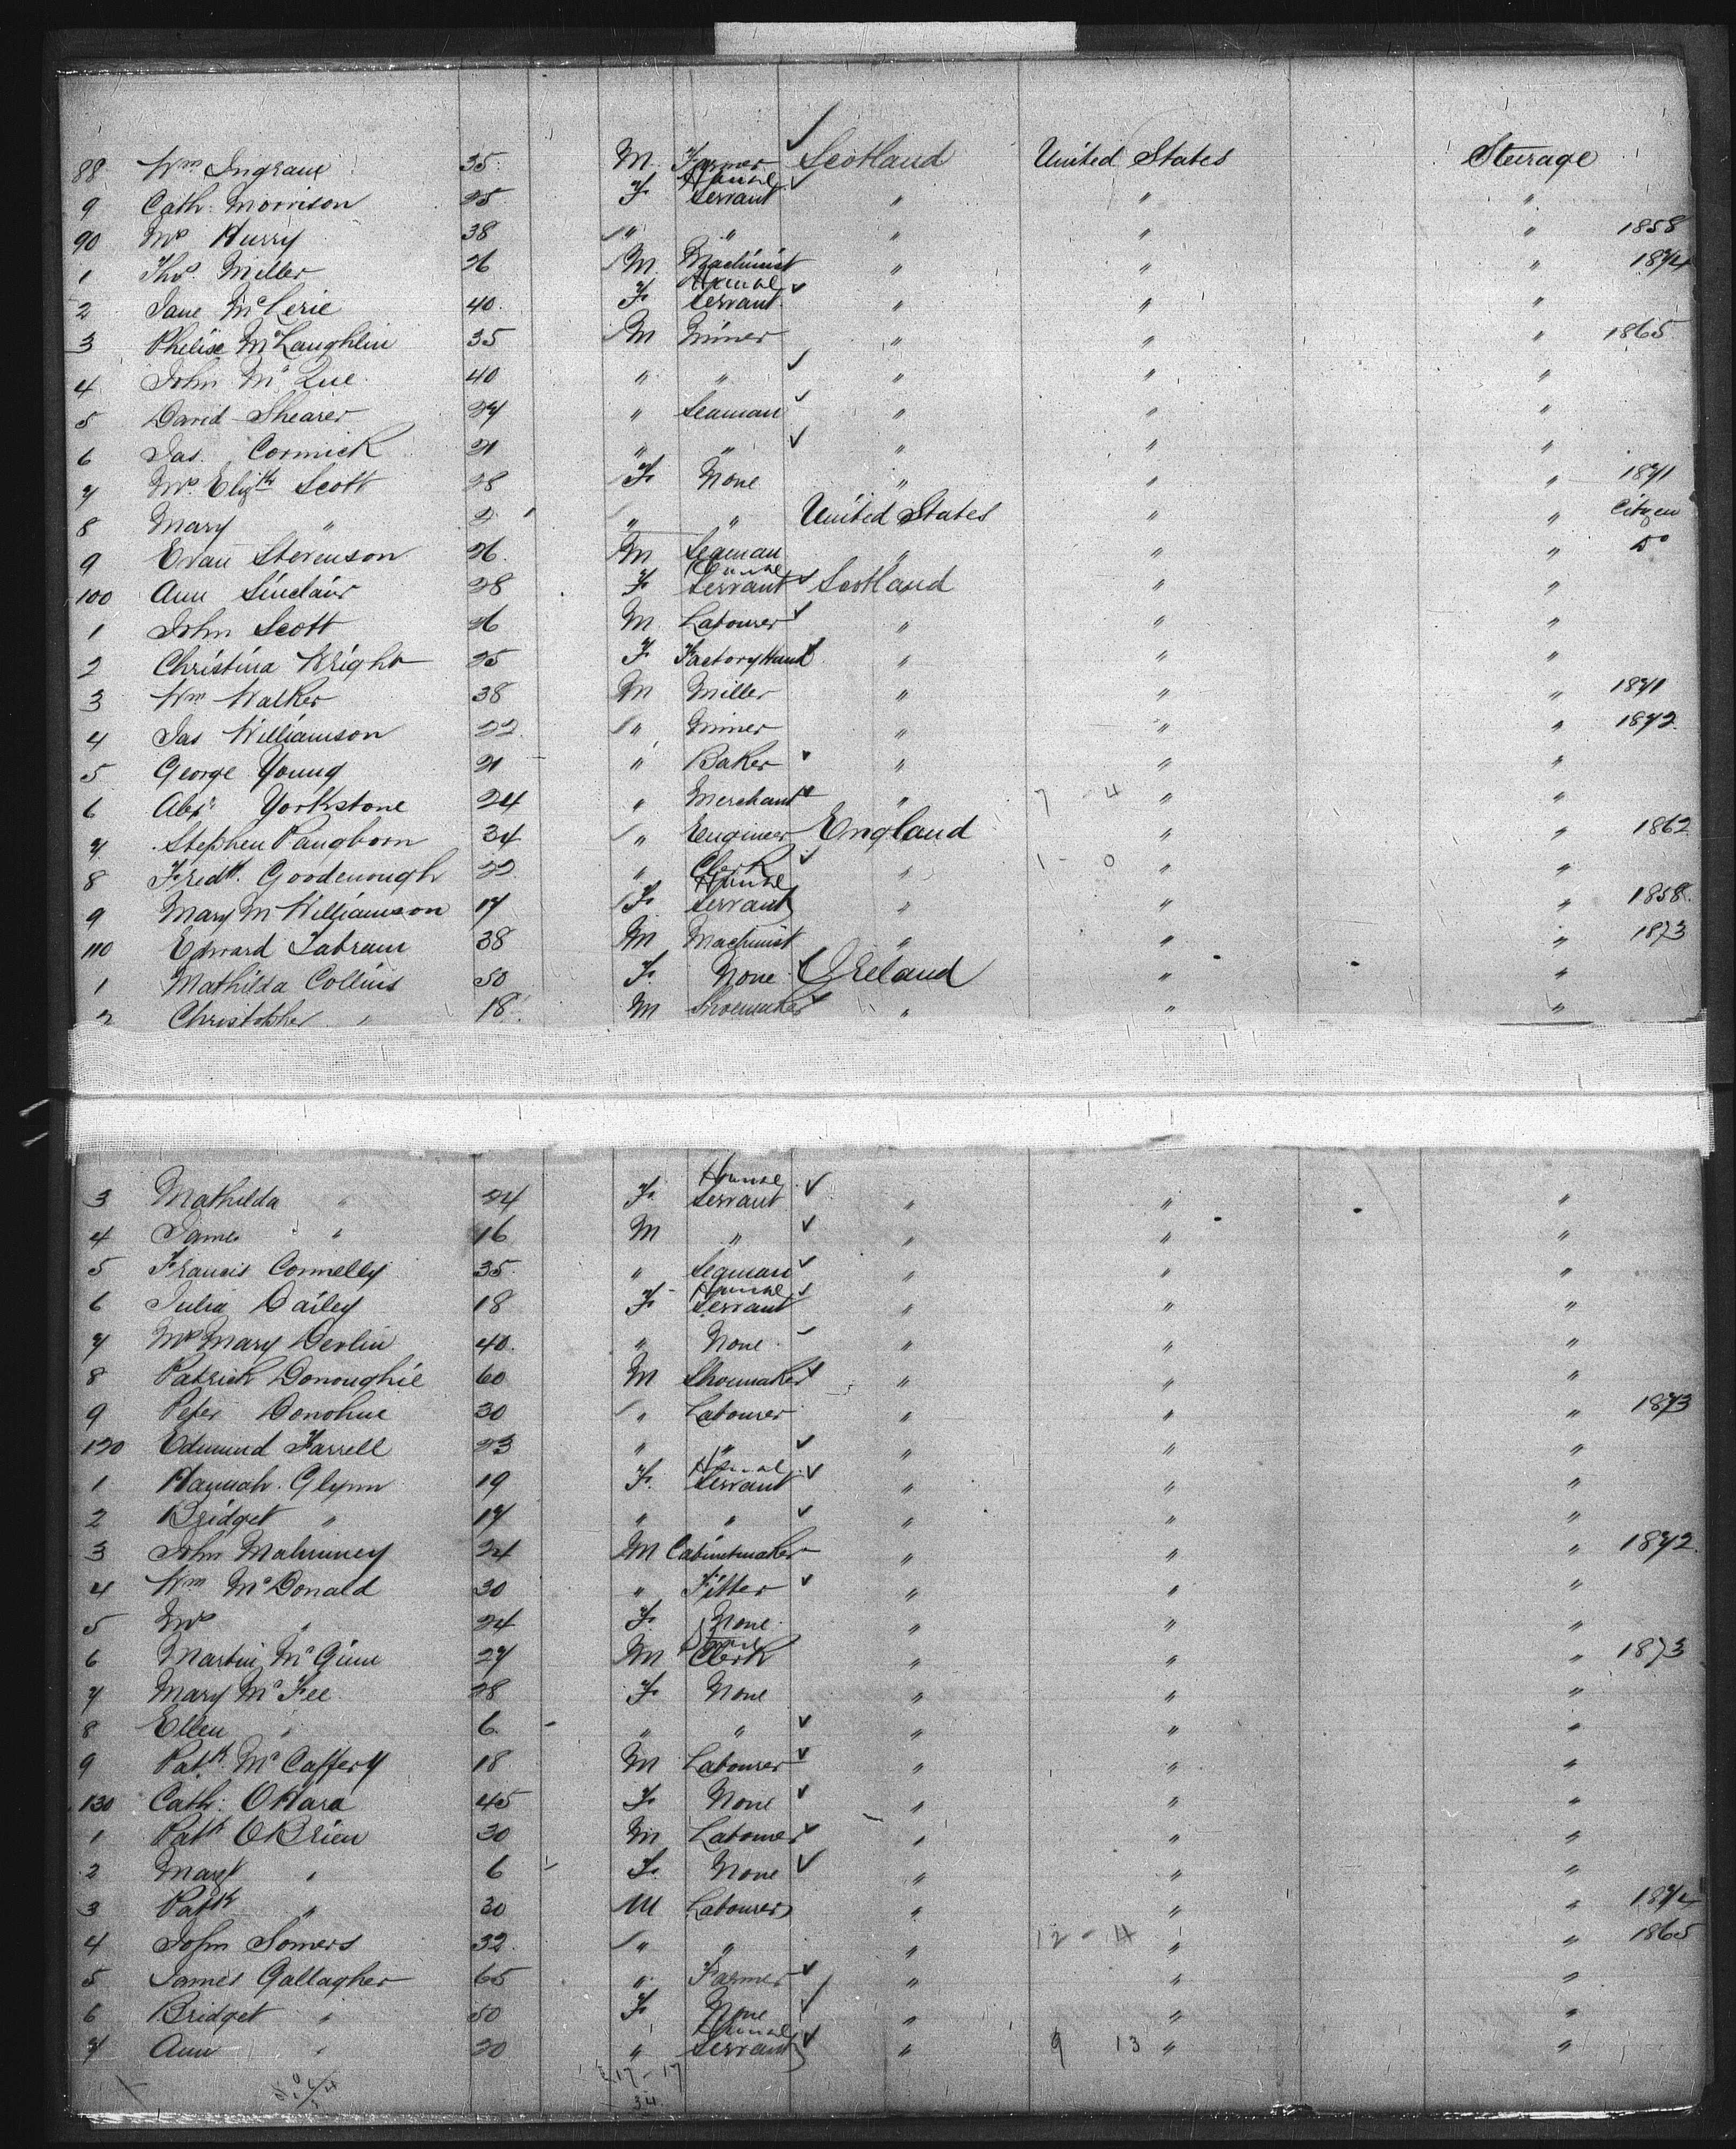 88 Wm Ingram 35 M Farmer Scotland United States Steerage
9 Cath. Morrison 25 F House Servant " " "
90 Mrs Hurry 38 " " " " " 1858
1 Thos Miller 26 M Machinist " " " 1874
2 Jane McLerie 40 F House Servant " " "
3 McLaughlin 35 M Miner " " " 1865
4 John McQue 40 " " " " "
5 David Shearer 27 " Seaman " " "
6 Jas. Cormick 21 " " " " "
7 Mrs Elizth Scott 28 F None " " " 1871
8 Mary " 2 " " United States " " Citizen
9 Evan Stevenson 26 M Seaman " " " Do
100 Ann Sinclair 28 F House Servant Scotland " "
1 John Scott 26 M Labourer " " "
2 Christina Wright 25 F Factory Hand " " "
3 Wm Walker 38 M Miller " " " 1871
4 Jas Williamson 22 " Miner " " " 1872
5 George Young 21 " Baker " " "
6 Alexr Yorkstone 24 " Merchant " 7 - 4 " "
7 Stephen Pangborn 34 " Engineer England " " 1862
8 Fredk. Goodenough 22 " Clerk " 1 - 0 " "
9 Mary M Williamson 17 F House Servant " " " 1858
110 Edward Tabram 38 M Machinist " " " 1873
1 Mathilda Collins 50 F None Ireland " "
2 Christopher " 18 M Shoemaker " " "
3 Mathilda " 24 F House Servant " " "
4 James " 16 M " " " "
5 Francis Connelly 35 " Seaman " " "
6 Julia Dailey 18 F House Servant " " "
7 Mrs Mary Devlin 40 " None " " "
8 Patrick Donoughie 60 M Shoemaker " " "
9 Peter Donohue 30 " Labourer " " " 1873
120 Edmund Farrell 23 " " " " "
1 Hannah Glynn 19 F House Servant " " "
2 Bridget " 17 " " " " "
3 John Mahinney 24 M Cabinetmaker " " " 1872
4 Wm McDonald 30 " Fitter " " "
5 Mrs " 24 F None " " "
6 Martin McGinn 27 M Store Clerk " " " 1873
7 Mary McFee 28 F None " " "
8 Ellen " 6 " " " " "
9 Patk McCaffery 18 M Labourer " " "
130 Cath: OHara 45 F None " " "
1 Patk OBrien 30 M Labourer " " "
2 Mary " 6 F None " " "
3 Patk " 30 M Labourer " " " 1874
4 John Somers 32 " " " 12 - 4 " " 1865
5 James Gallagher 65 " Farmer " " "
6 Bridget " 50 F None " " "
7 Ann " 20 " House Servant " 9 13 " "
17 - 17
34